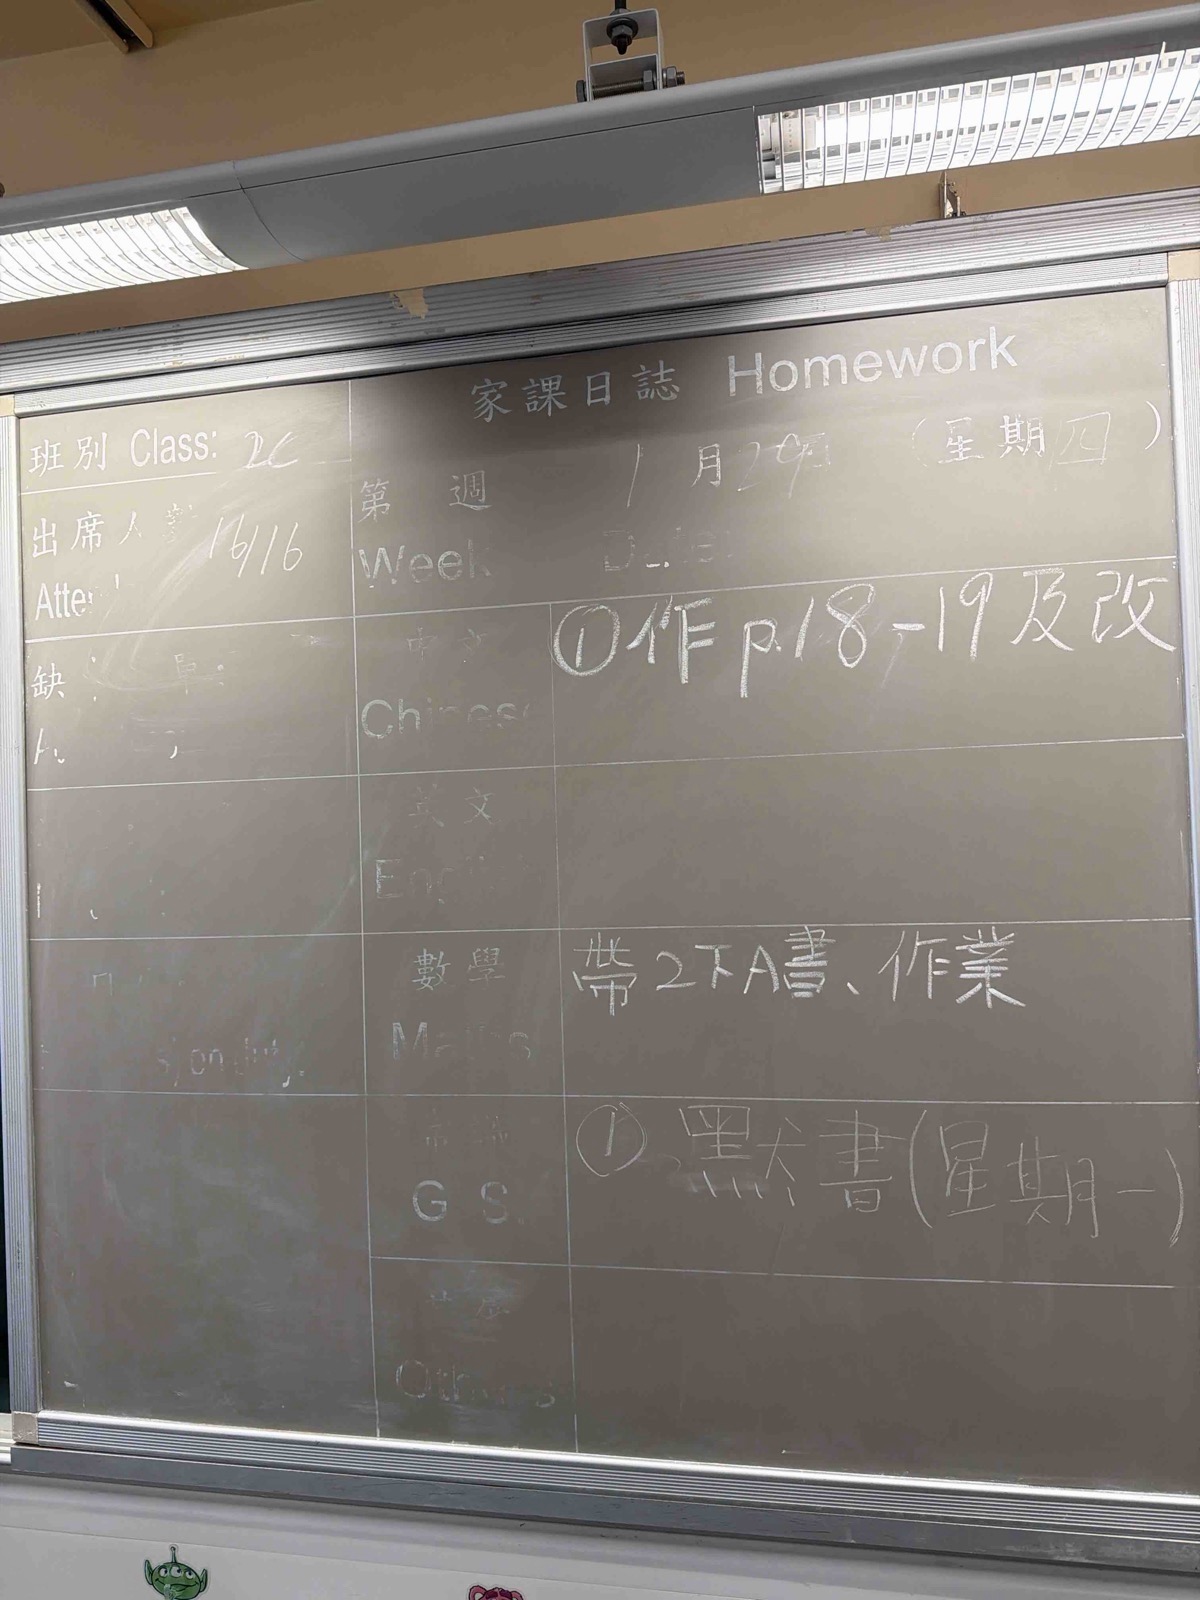 家課日誌 Homework
班別 Class: 2C
1月29日 (星期四)
第 週
Week Date:
出席人數 16/16
Atte
缺
中文
Chinese
①作 p.18-19及改
英文
English
數學
Maths
帶2下A書、作業
常識
G S.
①默書(星期一)
其他
Others
s) on duty: